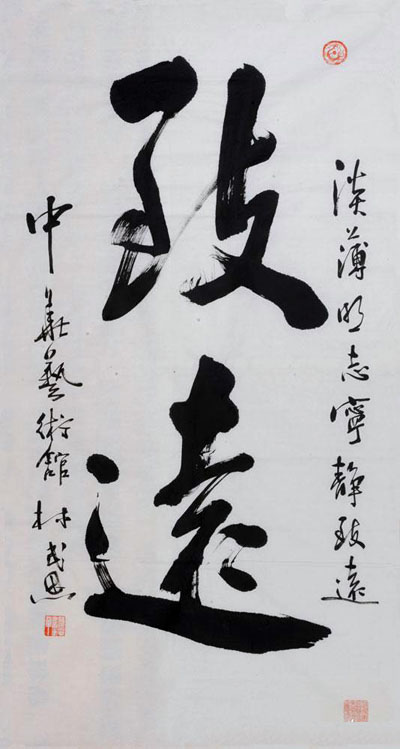 淡薄明志寧靜致遠
致遠
中華藝術館 林茂恩